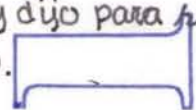 y dijo para